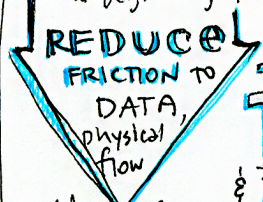 REDUCE
FRICTION TO
DATA,
physical
flow
&